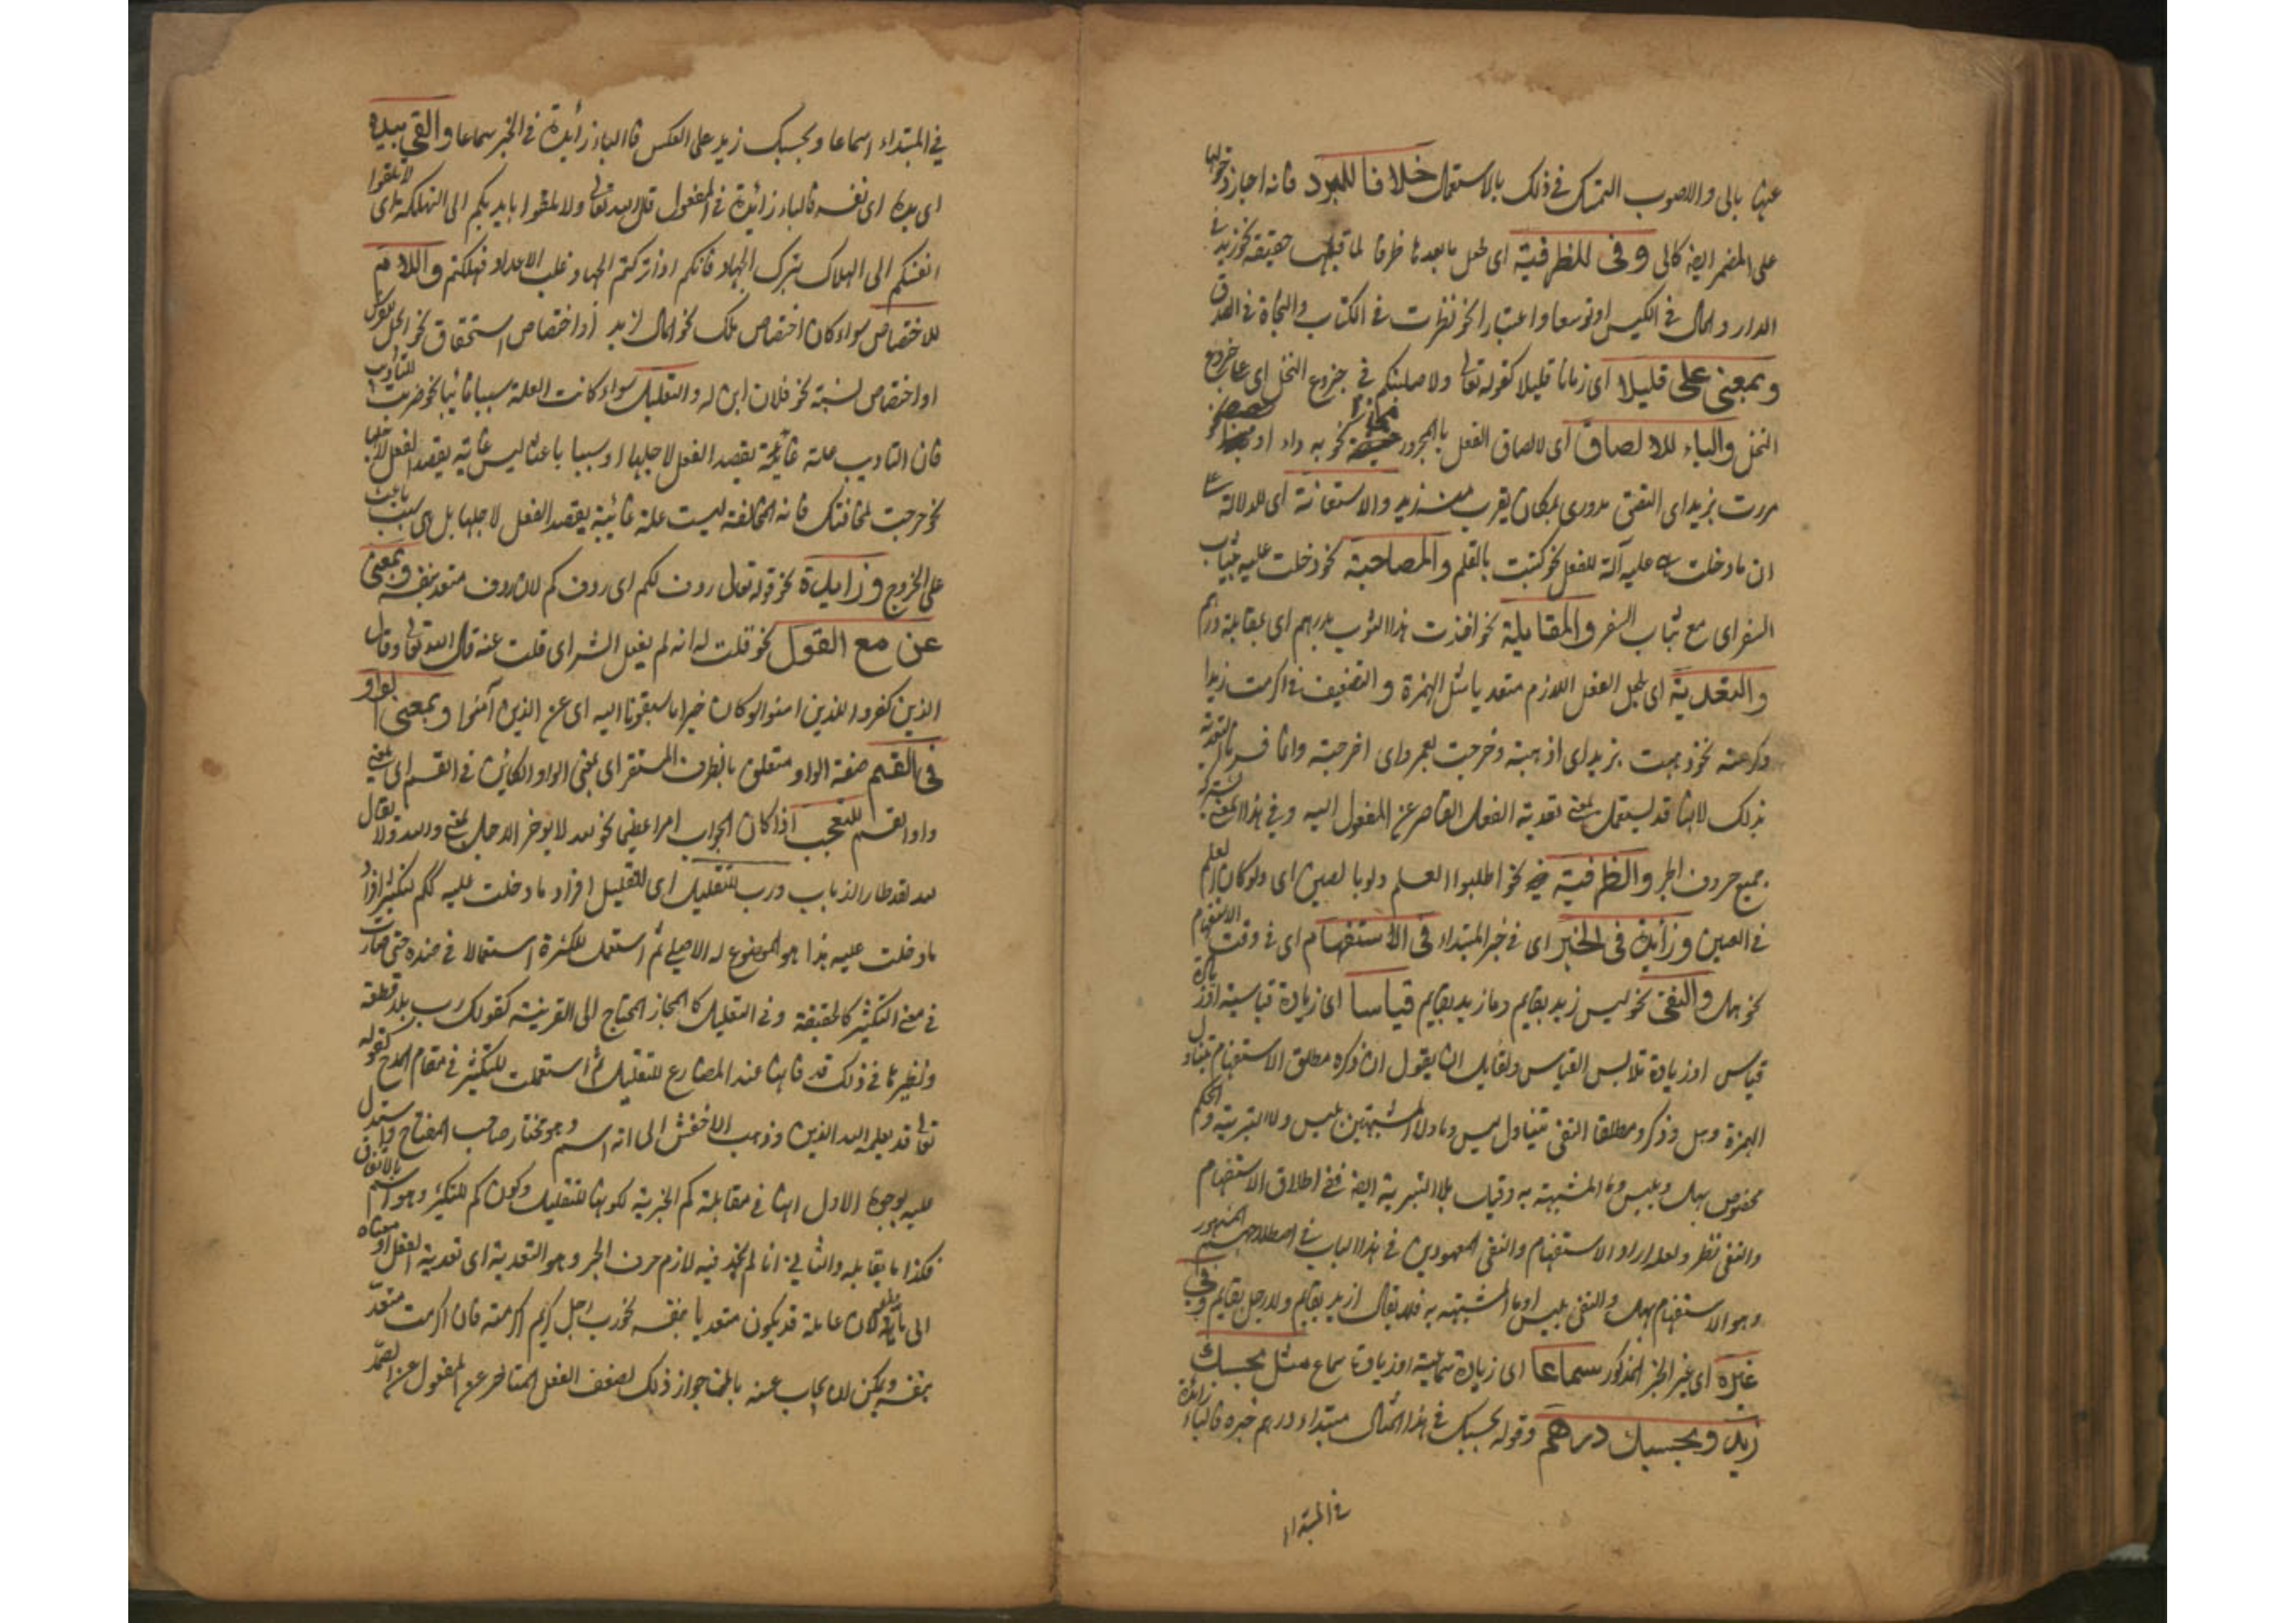 عنها بالى والاصوب التمسك فى ذلك بالاستعمال خلافا للمبرد فانه اجاز دخولها
على المضمر ايضا كالى وفى للظرفية اى لجعل ما بعدها ظرفا لما قبلها حقيقة نحو زيد فى
الدار والمال فى الكيس او توسعا واعتبارا نحو نظرت فى الكتاب والنجاة فى الصدق
وبمعنى على قليلا اى زمانا قليلا كقوله تعالى ولاصلبنكم فى جذوع النخل اى على جذوع
النخل والباء للالصاق اى لالصاق الفعل بالمجرور نحو به داء او مجازا نحو
مررت بزيد اى التصق مرورى بمكان يقرب منه زيد والاستعانة اى للدلالة على
ان ما دخلت عليه آلة للفعل نحو كتبت بالقلم والمصاحبة نحو دخلت عليه بثياب
السفر اى مع ثياب السفر والمقابلة نحو اخذت هذا الثوب بدرهم اى بمقابلة درهم
والتعدية اى لجعل الفعل اللازم متعديا مثل الهمزة والتضعيف فى اكرمت زيدا
وكرمته نحو ذهبت بزيد اى اذهبته وخرجت بعمرو اى اخرجته وانما فسر التعدية
بذلك لانها قد يستعمل بمعنى تعدية الفعل القاصر عن المفعول اليه وفى هذا المعنى يشترك
جميع حروف الجر والظرفية نحو اطلبوا العلم ولو بالصين اى ولو كان العلم
فى الصين وزائدة فى الخبر اى فى خبر المبتداء فى الاستفهام اى فى وقت الاستفهام
نحو هل والنفى نحو ليس زيد بقايم وما زيد بقايم قياسا اى زيادة قياسية
قياس او زيادة تلابس القياس ولقايل ان يقول ان ذكره مطلق الاستفهام يتناول
الهمزة وهل وذكره مطلقا النفى يتناول ليس وما ولا المشبهتين بليس ولا التبرية والحكم
مخصوص بهل وبليس وما المشبهة به وقيل بلا التبرية ايضا ففى اطلاق الاستفهام
والنفى نظر ولعله اراد الاستفهام والنفى المعهودين فى هذا الباب فى اصطلاحهم المشهور
وهو الاستفهام بهل والنفى بليس او ما المشبهة به فلا يقال ازيد بقايم ولا رجل بقايم وفى
غيره اى غير الخبر المذكور سماعا اى زيادة سماعية او زيادة سماع مثل بحسبك
زيد وبحسبك درهم وقوله بحسبك فى هذا المثال مبتداء ودرهم خبره فالباء زائدة
فى المبتداء
فى المبتداء سماعا وبحسبك زيد على العكس فالباء زايدة فى الخبر سماعا والقى بيده
اى يده اى نفسه فالباء زائدة فى المفعول قال الله تعالى ولا تلقوا بايديكم الى التهلكة اى لا تلقوا
انفسكم الى الهلاك بترك الجهاد فانكم اذا تركتم الجهاد غلب الاعداء فهلكتم واللام
للاختصاص سواء كان اختصاص ملك نحو المال لزيد او اختصاص استحقاق نحو الجل للفرس
او اختصاص نسبة نحو فلان ابن له والتعليل سواء كانت العلة سببا غائيا نحو ضربت للتاديب
فان التاديب علة غائية يقصد الفعل لاجلها او سببا باعثا ليس غائية يقصد الفعل لاجلها
نحو خرجت لمخافتك فانه المخافة ليست علة غائية يقصد الفعل لاجلها بل هى سبب باعث
على الخروج وزايدة نحو قوله تعالى ردف لكم اى ردفكم لان ردف متعد بنفسه وبمعنى
عن مع القول نحو قلت له انه لم يفعل الشر اى قلت عنه قال الله تعالى وقال
الذين كفروا للذين امنوا لو كان خيرا ما سبقونا اليه اى عن الذين آمنوا وبمعنى الواو
فى القسم صفة الواو متعلق بالظرف المستقر اى بمعنى الواو الكائن فى القسم اى بمعنى
واو القسم للتعجب اذا كان الجواب امرا عظيما نحو لله لا يؤخر الاجل بمعنى والله ولا يقال
لله لقد طار الذباب ورب للتقليل اى لتقليل افراد ما دخلت عليه كم لتكثير افراد
ما دخلت عليه هذا هو الموضوع له الاصلى ثم استعمل للكثرة استعمالا فى ضده حتى صارت
فى معنى التكثير كالحقيقة وفى التقليل كالمجاز المحتاج الى القرينة كقولك رب بلد قطعته
ونظيرها فى ذلك قد فانها عند المضارع للتقليل ثم استعملت للتكثير فى مقام المدح كقوله
تعالى قد يعلم الله الذين وذهب الاخفش الى انه اسم وهو مختار صاحب المفتاح واستدل
عليه بوجوه الاول انها فى مقابلة كم الخبرية لكونها للتقليل وكون كم للتكثير وهو اسم بالاتفاق
فكذا ما يقابله والثانى انا لم نجد فيه لازم حرف الجر وهو التعدية اى تعدية الفعل او معناه
الى ما يليه لان عاملة قد يكون متعديا بنفسه نحو رب رجل كريم اكرمته فان اكرمت متعد
بنفسه ويمكن ان يجاب عنه بالمنع جواز ذلك لضعف الفعل المتاخر عن المفعول عن العمل